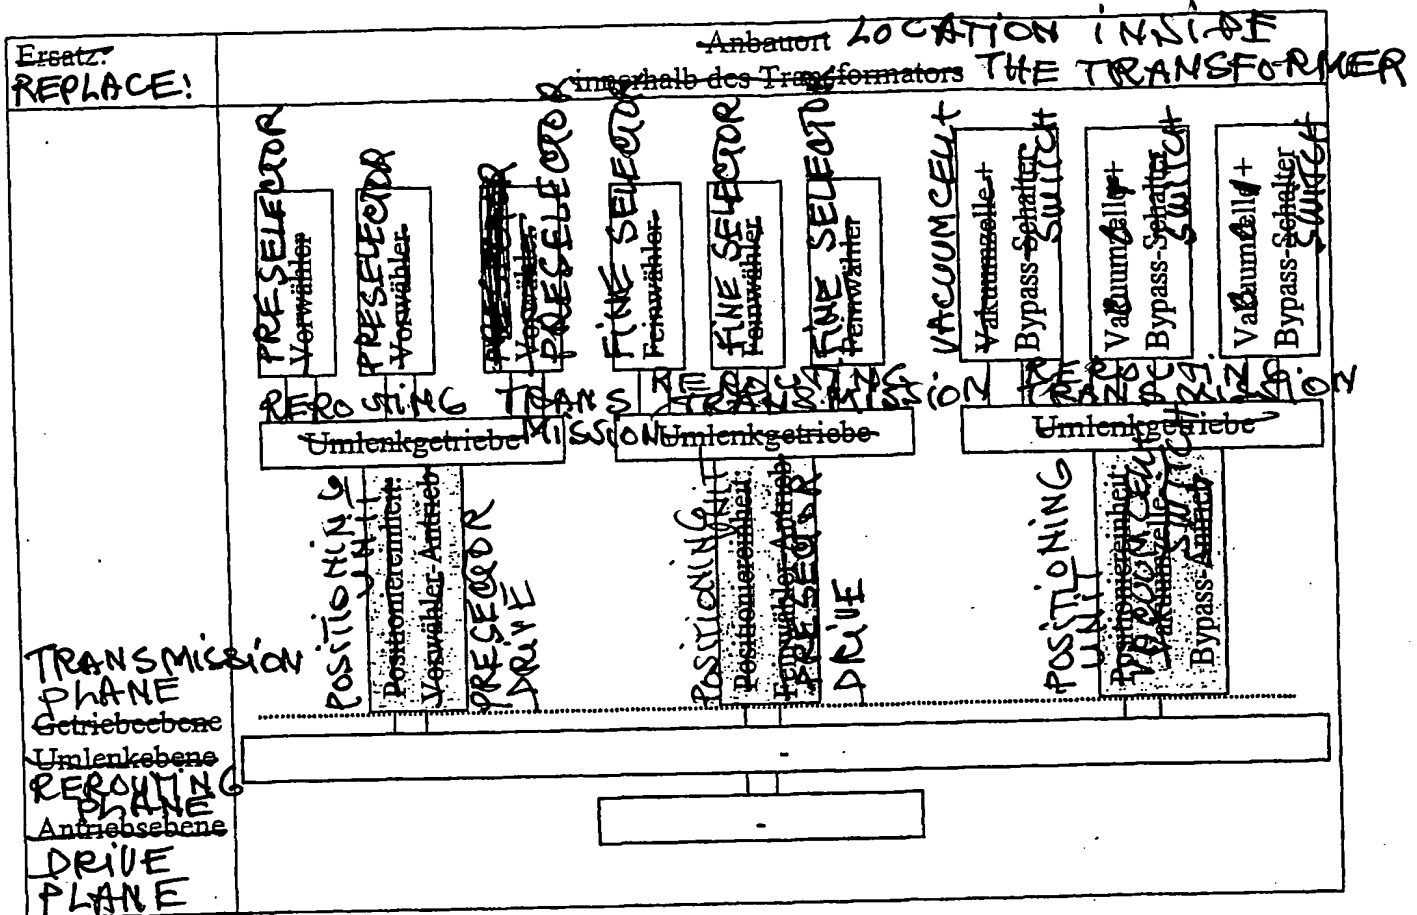 Ersatz:
REPLACE!
Anbauort LOCATION INSIDE
innerhalb des Transformators THE TRANSFORMER
PRESELECTOR
Vorwähler
PRESELECTOR
Vorwähler
Vorwähler
PRESELECTOR
FINE SELECTOR
Feinwähler
FINE SELECTOR
Feinwähler
FINE SELECTOR
Feinwähler
VACUUM CELL+
Vakuumzelle +
Bypass-Schalter
SWITCH
Vakuumzelle +
Bypass-Schalter
SWITCH
Vakuumzelle +
Bypass-Schalter
SWITCH
REROUTING TRANS
MISSION
Umlenkgetriebe
REROUTING
TRANSMISSION
Umlenkgetriebe
REROUTING
TRANSMISSION
Umlenkgetriebe
POSITIONING
UNIT
Positioniereinheit:
Vorwähler-Antrieb
PRESECTOR
DRIVE
POSITIONING
UNIT
Positioniereinheit:
Feinwähler-Antrieb
PRESECTOR
DRIVE
POSITIONING
UNIT
Positioniereinheit:
VACUUM CELL+
Vakuumzelle
SWITCH
Bypass-Antrieb
TRANSMISSION
PLANE
Getriebeebene
Umlenkebene
-
REROUTING
PLANE
Antriebsebene
-
DRIVE
PLANE